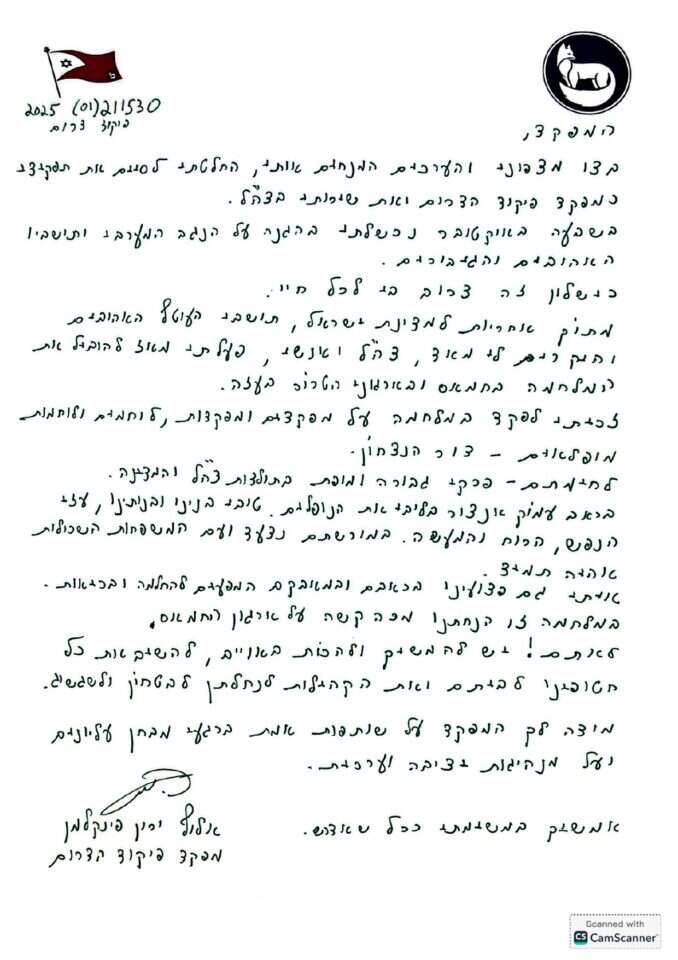 211530 (01) 2025
פיקוד דרום
המפקד,
בצו מצפוני והערכים המנחים אותי, החלטתי לסיים את תפקידי
כמפקד פיקוד הדרום ואת שירותי בצה"ל.
בשבעה באוקטובר נכשלתי בהגנה על הנגב המערבי ותושביו
האהובים והגיבורים.
כישלון זה צרוב בי לכל חיי.
מתוך אחריות למדינת ישראל, תושבי העוטף האהובים
והיקרים לי מאוד, צה"ל ואנשיו, פעלתי מאז להוביל את
המלחמה בחמאס ובארגוני הטרור בעזה.
זכיתי לפקד במלחמה על מפקדים ומפקדות, לוחמים ולוחמות
מופלאים - דור הנצחון.
לחימתם - פרקי גבורה ומופת בתולדות צה"ל והמדינה.
בכאב עמוק אנצור בליבי את הנופלים. טובי בנינו ובנותינו, עזי
הנפש, הרוח והמעשה. במורשתם נצעד ועם המשפחות השכולות
אהיה תמיד.
איתי גם פצועינו בכאבם ובמאבקם המפעים להחלמה ובריאות.
במלחמה זו הנחתנו מכה קשה על ארגון החמאס.
לא תם! יש להמשיך ולהכות באוייב, להשיב את כל
חטופינו לביתם ואת הקהילות לנחלתן לבטחון ולשגשוג.
מודה לך המפקד על שותפות אמת ברגעי מבחן עליונים
ועל מנהיגות יציבה וערכית.
אמשיך במשימתי ככל שאדרש.
אלוף ירון פינקלמן
מפקד פיקוד הדרום
Scanned with
CS CamScanner